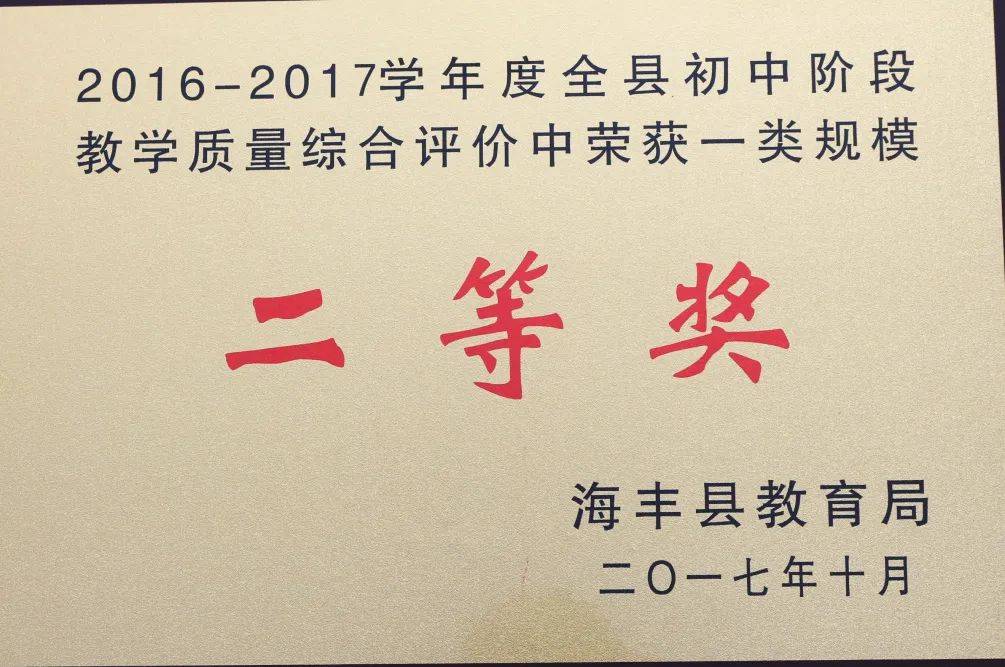 2016-2017学年度全县初中阶段
教学质量综合评价中荣获一类规模
二等奖
海丰县教育局
二〇一七年十月